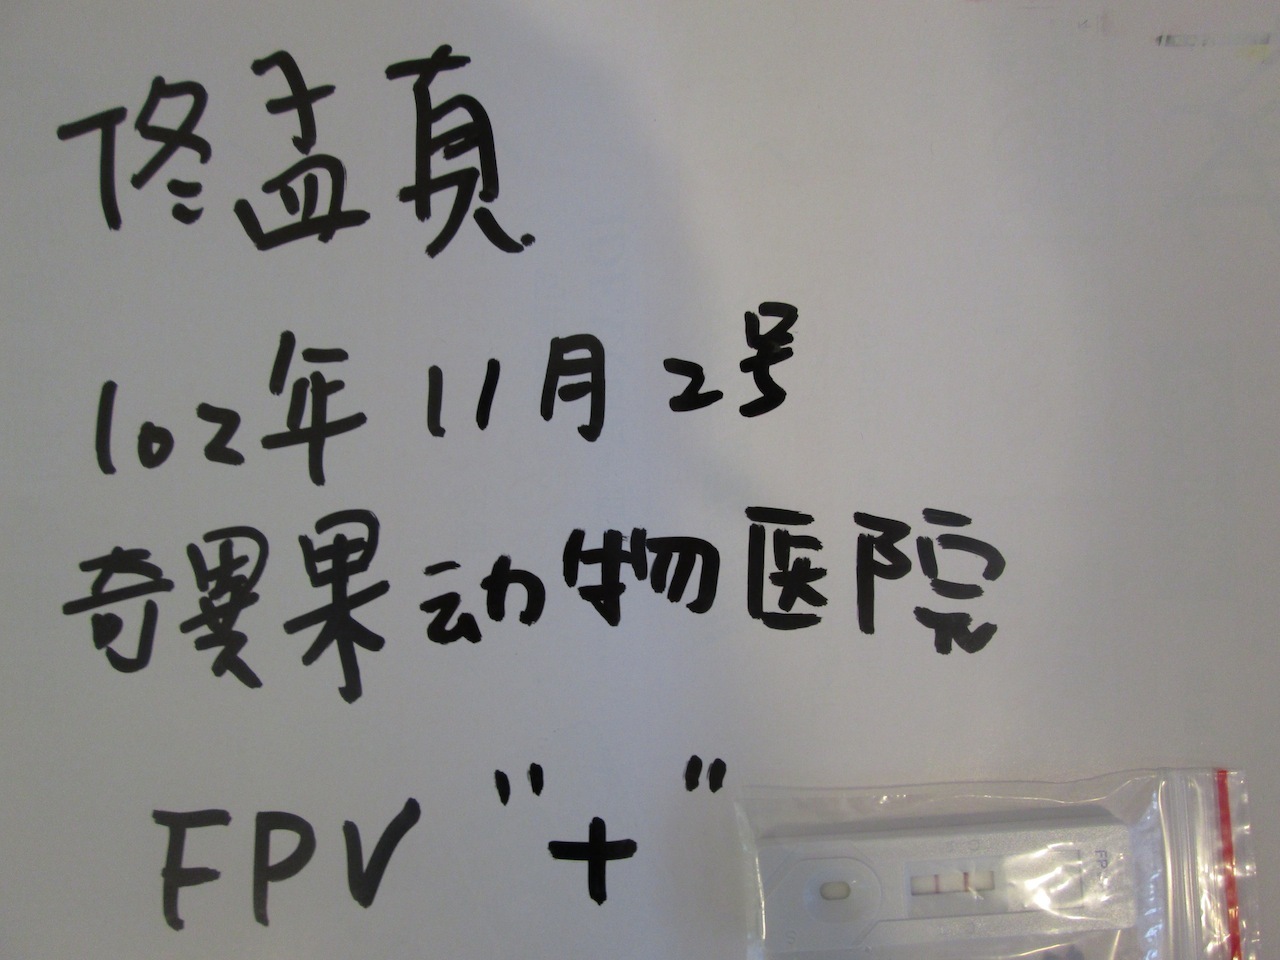 佟孟真
102年11月2号
奇異果动物医院
FPV "+"